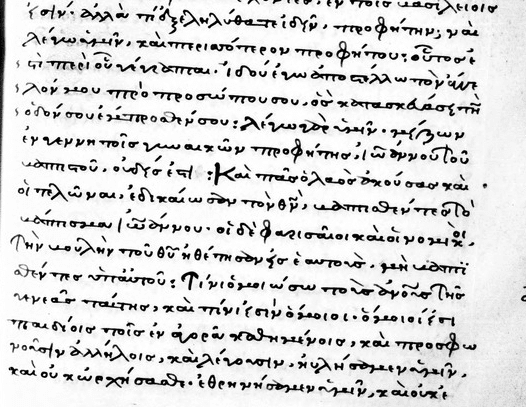 ἐν τοῖς βασιλείοις
εἰσίν· ἀλλὰ τί ἐξεληλύθατε ἰδεῖν, προφήτην; ναὶ
λέγω ὑμῖν, καὶ περισσότερον προφήτου: οὗτός ἐ
στι περὶ οὗ γέγραπται. Ἰδοὺ ἐγὼ ἀποστέλλω τὸν ἄγγε
λόν μου πρὸ προσώπου σου, ὃς κατασκευάσει τὴν
ὁδόν σου ἔμπροσθέν σου: λέγω γὰρ ὑμῖν· μείζων
ἐν γεννητοῖς γυναικῶν προφήτης, ἰωάννου τοῦ
βαπτιστοῦ, οὐδείς ἐστι: Καὶ πᾶς ὁ λαὸς ἀκούσας καὶ
οἱ τελῶναι, ἐδικαίωσαν τὸν θν̅, βαπτισθέντες τὸ
βάπτισμα ἰωάννου· οἱ δὲ φαρισαῖοι καὶ οἱ νομικοὶ,
τὴν βουλὴν τοῦ θυ̅ ἠθέτησαν εἰς ἑαυτοὺς, μὴ βαπτι
σθέντες ὑπ' αὐτοῦ: Τίνι ὁμοιώσω τοὺς ἀνο̅υς τῆς
γενεᾶς ταύτης, καὶ τίνι εἰσὶν ὅμοιοι· ὅμοιοί εἰσι
παιδίοις τοῖς ἐν ἀγορᾷ καθημένοις, καὶ προσφω
νοῦσιν ἀλλήλοις, καὶ λέγουσιν, ηὐλήσαμεν ὑμῖν,
καὶ οὐκ ὠρχήσασθε· ἐθρηνήσαμεν ὑμῖν, καὶ οὐκ ἐ